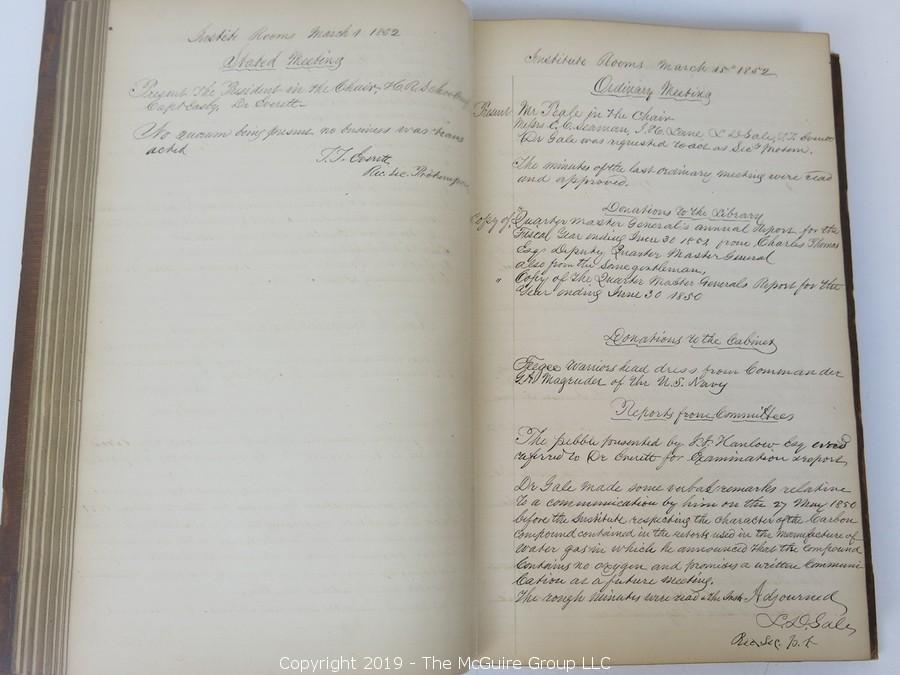 Institute Rooms March 1 1852
Stated Meeting
Present The President in the Chair, H. R. Schoolcraft
Capt Easby, Dr Everett
No quorum being present no business was trans
acted
T. F. Everett
Rec Sec. Protempore
Institute Rooms March 15th 1852
Ordinary Meeting
Present Mr Peale in the Chair
Messrs E. C. Seaman, J. H. Lane, L D Gale, T. F. Everett
Dr Gale was requested to act as Secy protem.
The minutes of the last ordinary meeting were read
and approved.
Donations to the Library
Copy of Quarter Master General's annual report for the
Fiscal Year ending June 30 1852 from Charles Thomas
Esq. Deputy Quarter Master General
also from the same gentleman,
" Copy of the Quarter Master Generals Report for the
Year ending June 30 1850
Donations to the Cabinet
Feegee Warriors head dress from Commander
Magruder of the U.S. Navy
Reports from Committees
The pebble presented by Hanlow Esq was
referred to Dr Everett for Examination & report,
Dr Gale made some verbal remarks relative
to a communication by him on the 27 May 1850
before the Institute respecting the character of the Carbon
compound contained in the retorts used in the manufacture of
water gas in which he announced that the compound
contains no oxygen and promises a written communi
cation at a future meeting.
The rough minutes were read & the Inst. Adjourned
L. D. Gale,
Rec Sec. p. t
Copyright 2019 - The McGuire Group LLC